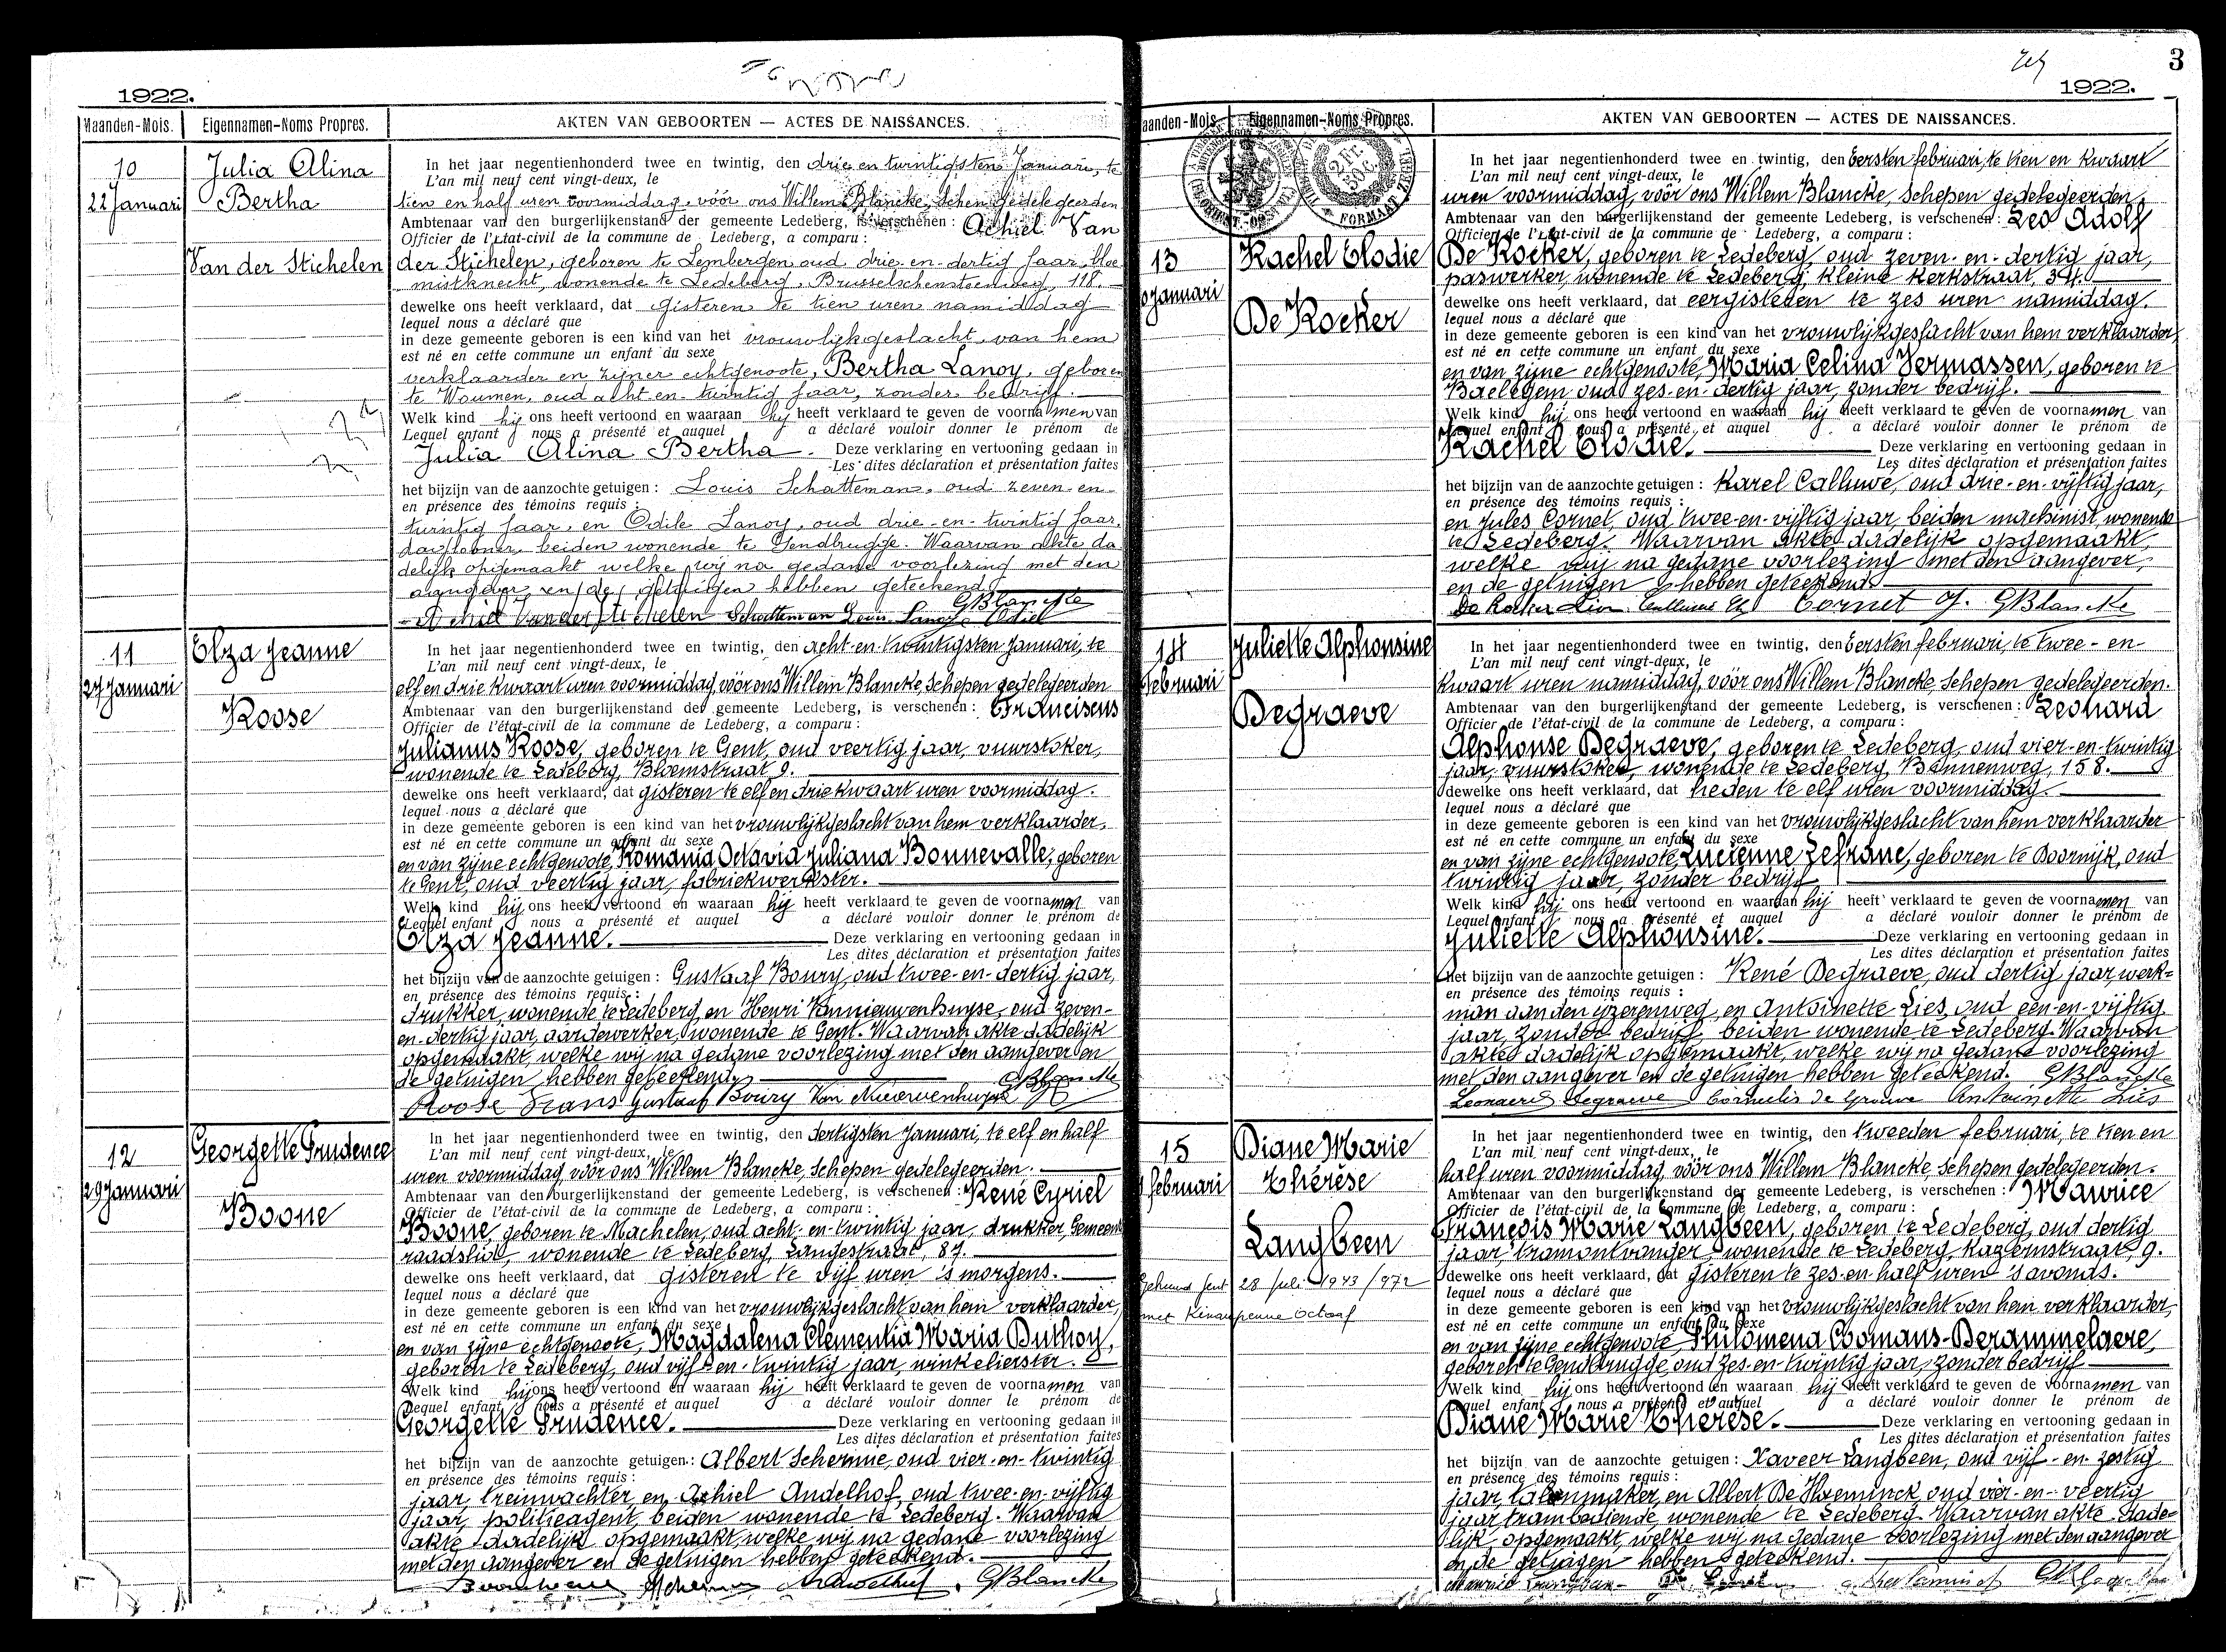 1922.
Maanden-Mois. Eigennamen-Noms Propres. AKTEN VAN GEBOORTEN — ACTES DE NAISSANCES.
10
22 Januari
Julia Alina
Bertha
Van der Stichelen
In het jaar negentienhonderd twee en twintig, den drie en twintigsten Januari, te
L'an mil neuf cent vingt-deux, le
tien en half uren voormiddag, vóór ons Willem Blancke, Schepen gedelegeerden
Ambtenaar van den burgerlijkenstand der gemeente Ledeberg, is verschenen : Achiel Van
Officier de l'état-civil de la commune de Ledeberg, a comparu :
der Stichelen, geboren te Lembergen oud drie-en-dertig jaar, bloe
mistknecht, wonende te Ledeberg, Brusselschensteenweg, 118.
dewelke ons heeft verklaard, dat gisteren te tien uren namiddag
lequel nous a déclaré que
in deze gemeente geboren is een kind van het vrouwlijkgeslacht, van hem
est né en cette commune un enfant du sexe
verklaarder en zijner echtgenoote, Bertha Lanoy, geboren
te Woumen, oud acht-en-twintig jaar, zonder bedrijf.
Welk kind hij ons heeft vertoond en waaraan hij heeft verklaard te geven de voornamen van
Lequel enfant nous a présenté et auquel a déclaré vouloir donner le prénom de
Julia Alina Bertha. Deze verklaring en vertooning gedaan in
Les dites déclaration et présentation faites
het bijzijn van de aanzochte getuigen : Louis Schatteman, oud zeven-en-
en présence des témoins requis :
twintig jaar, en Odile Lanoy, oud drie-en-twintig jaar,
daglooner, beiden wonende te Gendbrugge. Waarvan akte da
delijk opgemaakt welke wij na gedane voorlezing met den
aangever en de getuigen hebben geteekend.
GBlancke
Achiel Van der Stichelen Schatteman Louis Lanoy Odiel
11
27 Januari
Elza Jeanne
Roose
In het jaar negentienhonderd twee en twintig, den acht-en-twintigsten Januari, te
L'an mil neuf cent vingt-deux, le
elf en drie kwaart uren voormiddag, vóór ons Willem Blancke, Schepen gedelegeerden
Ambtenaar van den burgerlijkenstand der gemeente Ledeberg, is verschenen : Franciscus
Officier de l'état-civil de la commune de Ledeberg, a comparu :
Julianus Roose, geboren te Gent, oud veertig jaar, vuurstoker,
wonende te Ledeberg, Bloemstraat 9.
dewelke ons heeft verklaard, dat gisteren te elf en drie kwaart uren voormiddag.
lequel nous a déclaré que
in deze gemeente geboren is een kind van het vrouwlijkgeslacht van hem verklaarder,
est né en cette commune un enfant du sexe
en van zijne echtgenoote, Romania Octavia Juliana Bonnevalle, geboren
te Gent, oud veertig jaar, fabriekwerkster.
Welk kind hij ons heeft vertoond en waaraan hij heeft verklaard te geven de voornamen van
Lequel enfant nous a présenté et auquel a déclaré vouloir donner le prénom de
Elza Jeanne. Deze verklaring en vertooning gedaan in
Les dites déclaration et présentation faites
het bijzijn van de aanzochte getuigen : Gustaaf Boury, oud twee-en-dertig jaar,
en présence des témoins requis :
drukker, wonende te Ledeberg, en Henri Vannieuwenhuyse, oud zeven-
en-dertig jaar, aardewerker, wonende te Gent. Waarvan akte dadelijk
opgemaakt, welke wij na gedane voorlezing met den aangever en
de getuigen hebben geteekend.
GBlancke
Roose Frans Gustaaf Boury Van Nieuwenhuyse
12
29 Januari
Georgette Prudence
Boone
In het jaar negentienhonderd twee en twintig, den dertigsten Januari, te elf en half
L'an mil neuf cent vingt-deux, le
uren voormiddag, vóór ons Willem Blancke, Schepen gedelegeerden.
Ambtenaar van den burgerlijkenstand der gemeente Ledeberg, is verschenen : René Cyriel
Officier de l'état-civil de la commune de Ledeberg, a comparu :
Boone, geboren te Machelen, oud acht-en-twintig jaar, drukker, Gemeente
raadslid, wonende te Ledeberg, Langestraat, 87.
dewelke ons heeft verklaard, dat gisteren te vijf uren 's morgens.
lequel nous a déclaré que
in deze gemeente geboren is een kind van het vrouwlijkgeslacht van hem verklaarder,
est né en cette commune un enfant du sexe
en van zijne echtgenoote, Magdalena Clementia Maria Duthoy,
geboren te Ledeberg, oud vijf-en-twintig jaar, winkelierster.
Welk kind hij ons heeft vertoond en waaraan hij heeft verklaard te geven de voornamen van
Lequel enfant nous a présenté et auquel a déclaré vouloir donner le prénom de
Georgette Prudence. Deze verklaring en vertooning gedaan in
Les dites déclaration et présentation faites
het bijzijn van de aanzochte getuigen : Albert Schernie, oud vier-en-twintig
en présence des témoins requis :
jaar, treinwachter, en Achiel Andelhof, oud twee-en-vijftig
jaar, politieagent, beiden wonende te Ledeberg. Waarvan
akte dadelijk opgemaakt, welke wij na gedane voorlezing
met den aangever en de getuigen hebben geteekend.
GBlancke
3
1922.
Maanden-Mois. Eigennamen-Noms Propres. AKTEN VAN GEBOORTEN — ACTES DE NAISSANCES.
2 Fr. 50 C.
FORMAAT ZEGEL
13
Januari
Rachel Elodie
De Kocker
In het jaar negentienhonderd twee en twintig, den Eersten februari, te tien en kwaart
L'an mil neuf cent vingt-deux, le
uren voormiddag, vóór ons Willem Blancke, Schepen gedelegeerden.
Ambtenaar van den burgerlijkenstand der gemeente Ledeberg, is verschenen : Leo Adolf
Officier de l'état-civil de la commune de Ledeberg, a comparu :
De Kocker, geboren te Ledeberg, oud zeven-en-dertig jaar,
paswerker, wonende te Ledeberg, Kleine Kerkstraat, 34.
dewelke ons heeft verklaard, dat eergisteren te zes uren namiddag.
lequel nous a déclaré que
in deze gemeente geboren is een kind van het vrouwlijkgeslacht van hem verklaarder,
est né en cette commune un enfant du sexe
en van zijne echtgenoote, Maria Celina Vermassen, geboren te
Baelegem, oud zes-en-dertig jaar, zonder bedrijf.
Welk kind hij ons heeft vertoond en waaraan hij heeft verklaard te geven de voornamen van
Lequel enfant nous a présenté et auquel a déclaré vouloir donner le prénom de
Rachel Elodie. Deze verklaring en vertooning gedaan in
Les dites déclaration et présentation faites
het bijzijn van de aanzochte getuigen : Karel Calluwe, oud drie-en-vijftig jaar,
en présence des témoins requis :
en Jules Cornet, oud twee-en-vijftig jaar, beiden machinist, wonende
te Ledeberg. Waarvan akte dadelijk opgemaakt,
welke wij na gedane voorlezing met den aangever,
en de getuigen hebben geteekend.
Cornet J. GBlancke
14
februari
Juliette Alphonsine
Degraeve
In het jaar negentienhonderd twee en twintig, den Eersten februari, te twee-en-
L'an mil neuf cent vingt-deux, le
kwaart uren namiddag, vóór ons Willem Blancke, Schepen gedelegeerden.
Ambtenaar van den burgerlijkenstand der gemeente Ledeberg, is verschenen : Leonard
Officier de l'état-civil de la commune de Ledeberg, a comparu :
Alphonse Degraeve, geboren te Ledeberg, oud vier-en-twintig
jaar, vuurstoker, wonende te Ledeberg, Binnenweg, 158.
dewelke ons heeft verklaard, dat heden te elf uren voormiddag.
lequel nous a déclaré que
in deze gemeente geboren is een kind van het vrouwlijkgeslacht van hem verklaarder
est né en cette commune un enfant du sexe
en van zijne echtgenoote, Lucienne Lefrane, geboren te Doornijk, oud
twintig jaar, zonder bedrijf
Welk kind hij ons heeft vertoond en waaraan hij heeft verklaard te geven de voornamen van
Lequel enfant nous a présenté et auquel a déclaré vouloir donner le prénom de
Juliette Alphonsine. Deze verklaring en vertooning gedaan in
Les dites déclaration et présentation faites
het bijzijn van de aanzochte getuigen : René Degraeve, oud dertig jaar, werk=
en présence des témoins requis :
man aan den ijzerenweg, en Antoinette Lies, oud een-en-vijftig
jaar, zonder bedrijf, beiden wonende te Ledeberg. Waarvan
akte dadelijk opgemaakt, welke wij na gedane voorlezing
met den aangever en de getuigen hebben geteekend. GBlancke
Leonard Degraeve Cornelis de Graeve Antoinette Lies
15
1 februari
Diane Marie
Thérèse
Langbeen
Gehuwd Gent 28 Juli 1943/972
met Kinaupenne Octaaf
In het jaar negentienhonderd twee en twintig, den tweeden februari, te tien en
L'an mil neuf cent vingt-deux, le
half uren voormiddag, vóór ons Willem Blancke, Schepen gedelegeerden.
Ambtenaar van den burgerlijkenstand der gemeente Ledeberg, is verschenen : Maurice
Officier de l'état-civil de la commune de Ledeberg, a comparu :
François Marie Langbeen, geboren te Ledeberg, oud dertig
jaar, tramontvanger, wonende te Ledeberg, Kazernstraat, 9.
dewelke ons heeft verklaard, dat gisteren te zes-en-half uren 's avonds.
lequel nous a déclaré que
in deze gemeente geboren is een kind van het vrouwlijkgeslacht van hem verklaarder,
est né en cette commune un enfant du sexe
en van zijne echtgenoote, Philomena Coomans-Derammelaere,
geboren te Gendbrugge, oud zes-en-twintig jaar, zonder bedrijf
Welk kind hij ons heeft vertoond en waaraan hij heeft verklaard te geven de voornamen van
Lequel enfant nous a présenté et auquel a déclaré vouloir donner le prénom de
Diane Marie Thérèse. Deze verklaring en vertooning gedaan in
Les dites déclaration et présentation faites
het bijzijn van de aanzochte getuigen : Xaveer Langbeen, oud vijf-en-zestig
en présence des témoins requis :
jaar, en Albert De Hoeminck, oud vier-en-veertig
jaar, trambediende wonende te Ledeberg. Waarvan akte dade=
lijk, opgemaakt, welke wij na gedane voorlezing met den aangever
en de getuigen hebben geteekend.